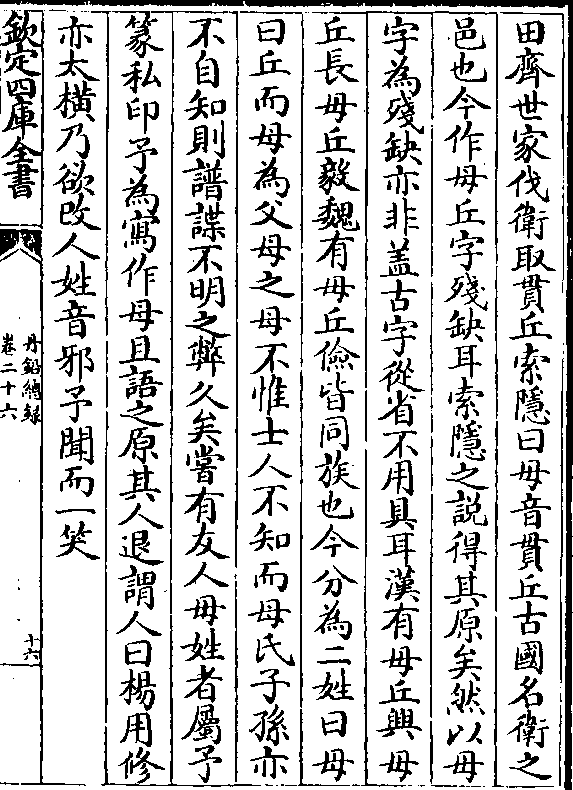 田齊世家伐衛取貫丘索隱曰毋音貫丘古國名衛之
邑也今作毋丘字殘缺耳索隱之説得其原矣然以毋
字為殘缺亦非盖古字從省不用具耳漢有毋丘興毋
丘長毋丘毅魏有毋丘儉皆同族也今分為二姓曰毋
曰丘而毋為父母之母不惟士人不知而毋氏子孫亦
不自知則譜諜不明之弊久矣嘗有友人毋姓者屬予
篆私印予為寫作毋且語之原其人退謂人曰楊用修
亦太橫乃欲改人姓音邪予聞而一笑
欽定四庫全書
丹鉛總錄
卷二十六
十六